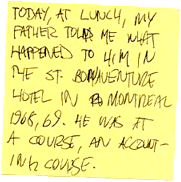 TODAY, AT LUNCH, MY
FATHER TOLD ME WHAT
HAPPENED TO HIM IN
THE ST. BONAVENTURE
HOTEL IN MONTREAL
1968, 69. HE WAS AT
A COURSE, AN ACCOUNT-
ING COURSE.